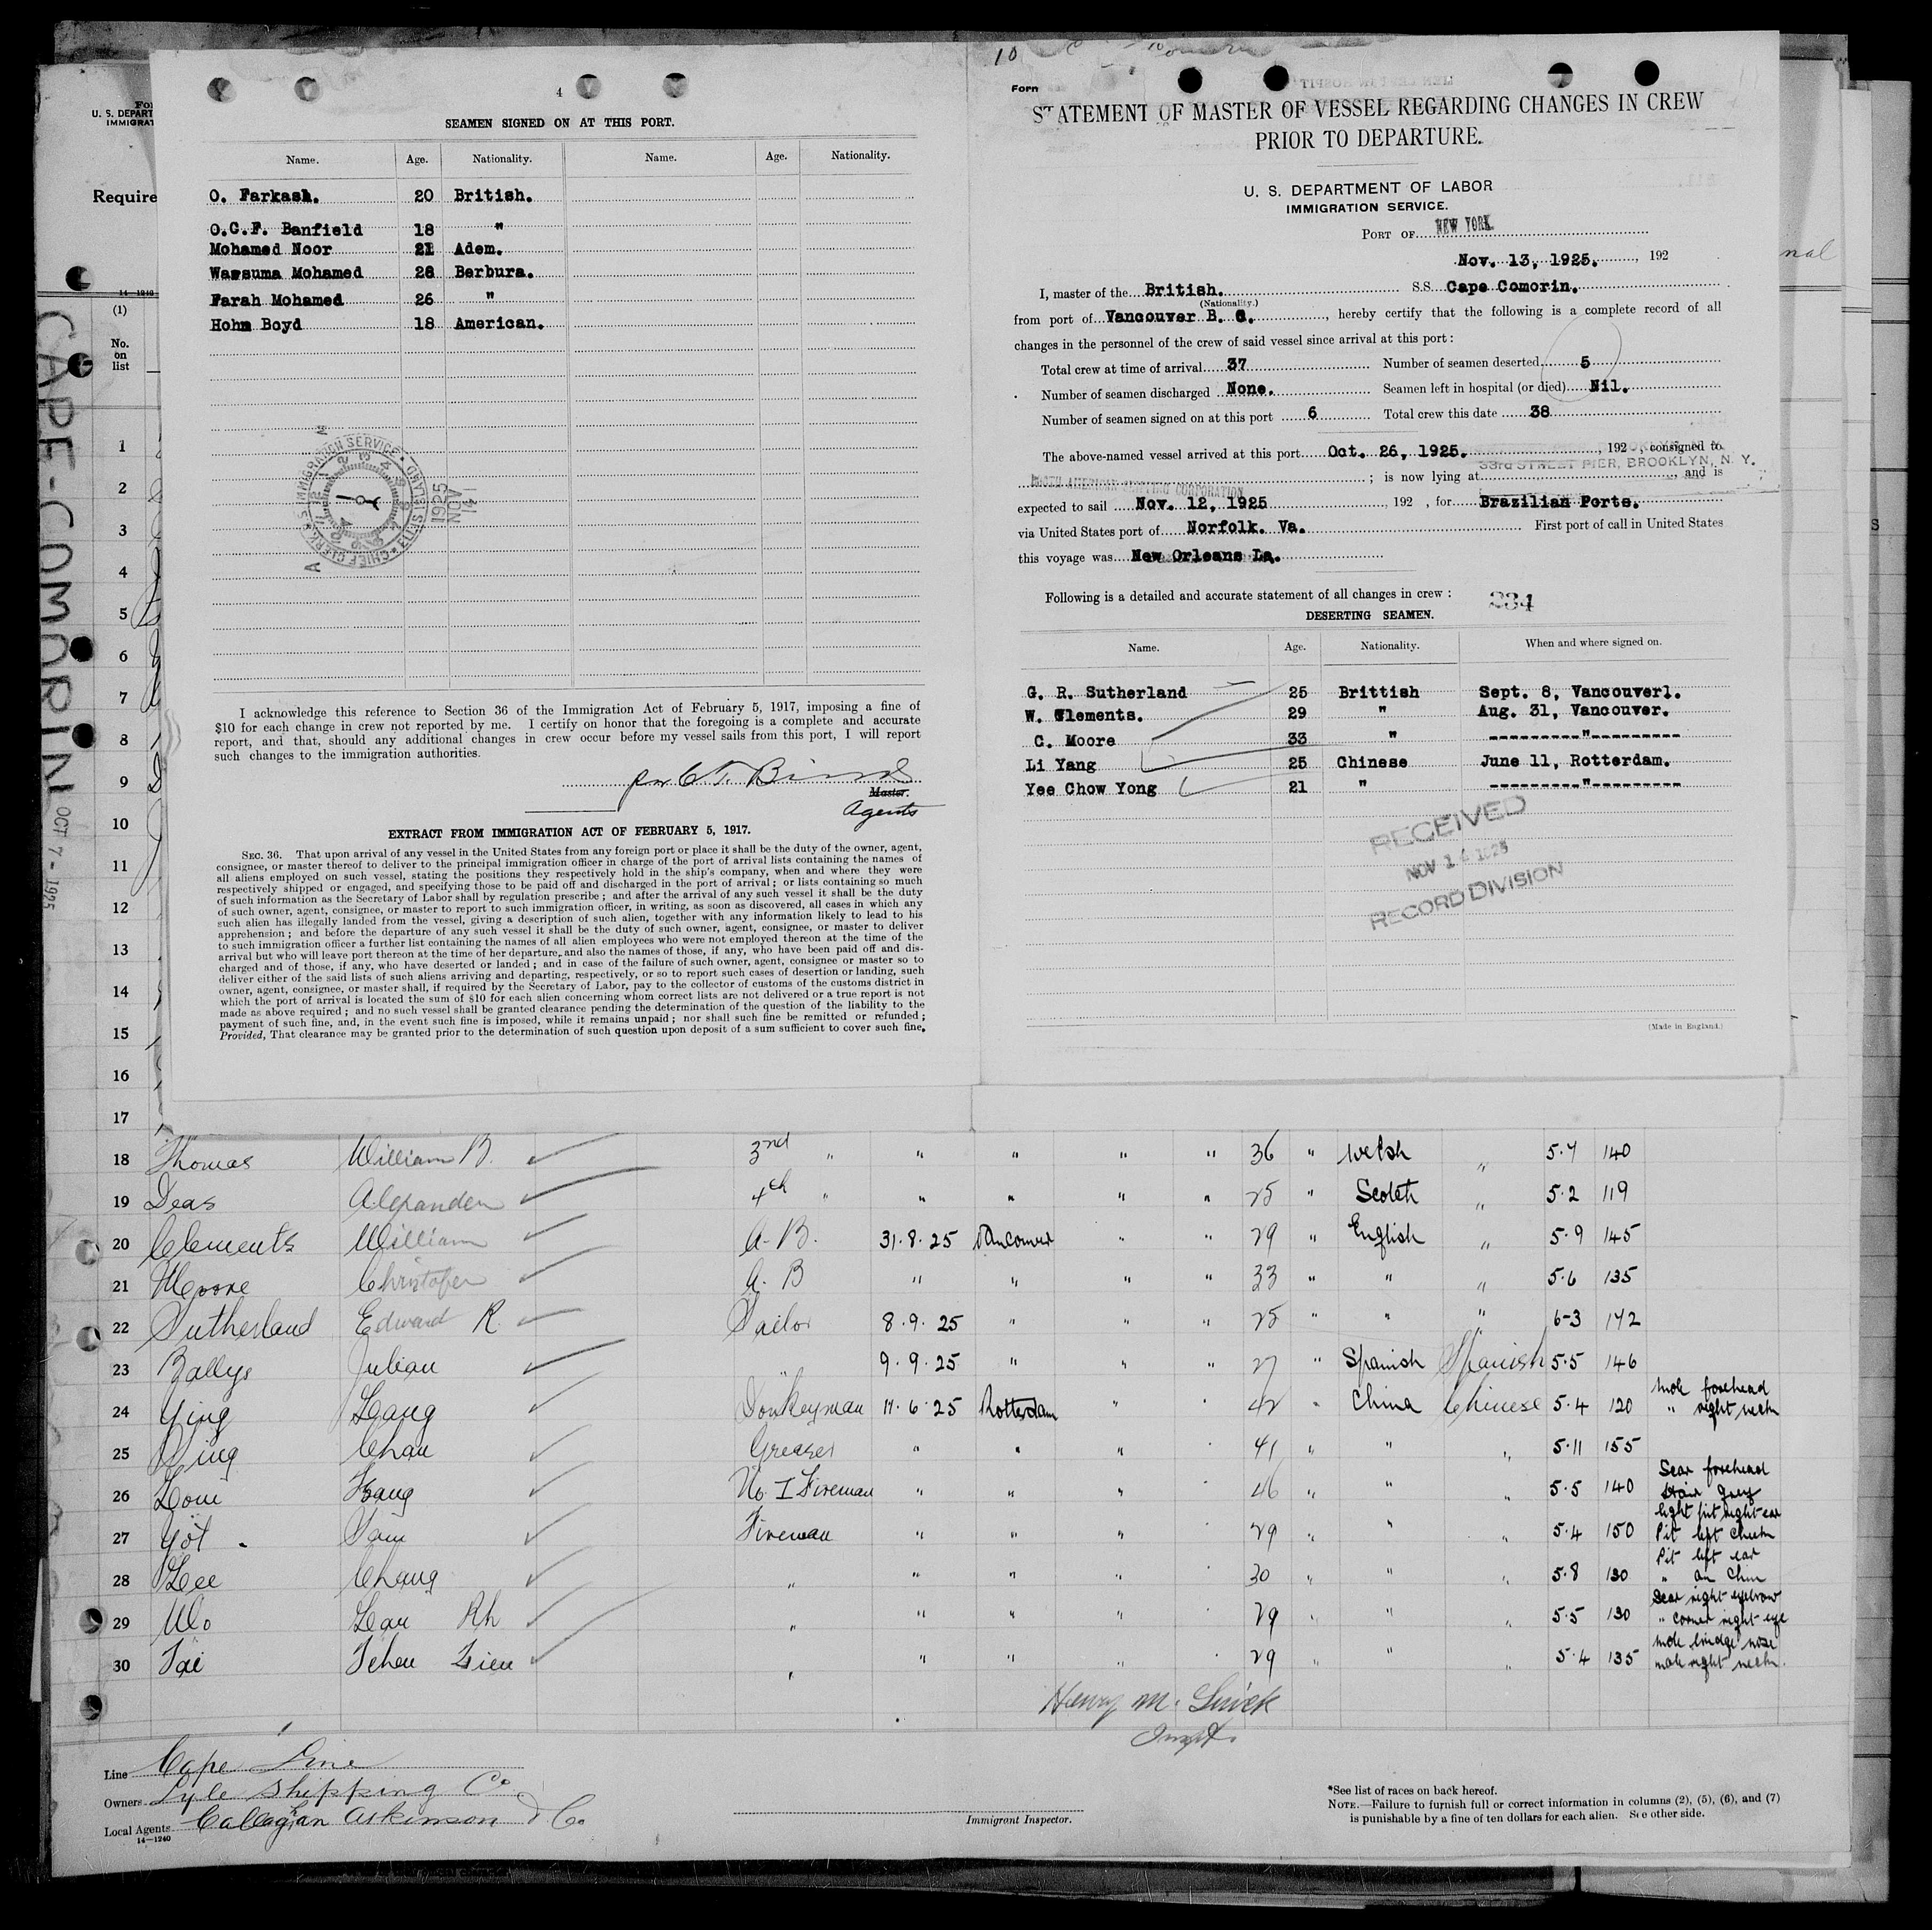 4
SEAMEN SIGNED ON AT THIS PORT.
Name. Age. Nationality. Name. Age. Nationality.
O. Farkash. 20 British.
O.G.F. Banfield 18 "
Mohamed Noor 21 Adem.
Warsuma Mohamed 28 Berbura.
Farah Mohamed 26 "
Hohn Boyd 18 American.
IMMIGRATION SERVICE
CHIEF CLERK
1925 NOV 14
I acknowledge this reference to Section 36 of the Immigration Act of February 5, 1917, imposing a fine of
$10 for each change in crew not reported by me. I certify on honor that the foregoing is a complete and accurate
report, and that, should any additional changes in crew occur before my vessel sails from this port, I will report
such changes to the immigration authorities.
Master.
Agents
EXTRACT FROM IMMIGRATION ACT OF FEBRUARY 5, 1917.
SEC. 36. That upon arrival of any vessel in the United States from any foreign port or place it shall be the duty of the owner, agent,
consignee, or master thereof to deliver to the principal immigration officer in charge of the port of arrival lists containing the names of
all aliens employed on such vessel, stating the positions they respectively hold in the ship's company, when and where they were
respectively shipped or engaged, and specifying those to be paid off and discharged in the port of arrival; or lists containing so much
of such information as the Secretary of Labor shall by regulation prescribe; and after the arrival of any such vessel it shall be the duty
of such owner, agent, consignee, or master to report to such immigration officer, in writing, as soon as discovered, all cases in which any
such alien has illegally landed from the vessel, giving a description of such alien, together with any information likely to lead to his
apprehension; and before the departure of any such vessel it shall be the duty of such owner, agent, consignee, or master to deliver
to such immigration officer a further list containing the names of all alien employees who were not employed thereon at the time of the
arrival but who will leave port thereon at the time of her departure, and also the names of those, if any, who have been paid off and dis-
charged and of those, if any, who have deserted or landed; and in case of the failure of such owner, agent, consignee or master so to
deliver either of the said lists of such aliens arriving and departing, respectively, or so to report such cases of desertion or landing, such
owner, agent, consignee, or master shall, if required by the Secretary of Labor, pay to the collector of customs of the customs district in
which the port of arrival is located the sum of $10 for each alien concerning whom correct lists are not delivered or a true report is not
made as above required; and no such vessel shall be granted clearance pending the determination of the question of the liability to the
payment of such fine, and, in the event such fine is imposed, while it remains unpaid; nor shall such fine be remitted or refunded;
Provided, That clearance may be granted prior to the determination of such question upon deposit of a sum sufficient to cover such fine.
10
Form
STATEMENT OF MASTER OF VESSEL REGARDING CHANGES IN CREW
PRIOR TO DEPARTURE.
U. S. DEPARTMENT OF LABOR
IMMIGRATION SERVICE.
PORT OF NEW YORK
Nov. 13, 1925. , 192
I, master of the British. S.S. Cape Comorin.
(Nationality.)
from port of Vancouver B. C. , hereby certify that the following is a complete record of all
changes in the personnel of the crew of said vessel since arrival at this port:
Total crew at time of arrival 37 Number of seamen deserted 5
Number of seamen discharged None. Seamen left in hospital (or died) Nil.
Number of seamen signed on at this port 6 Total crew this date 38
The above-named vessel arrived at this port Oct. 26, 1925. , 192 , consigned to
33rd STREET PIER, BROOKLYN, N. Y.
NORTH AMERICAN SHIPPING CORPORATION ; is now lying at , and is
expected to sail Nov. 12, 1925 , 192 , for Brazilian Ports.
via United States port of Norfolk. Va. First port of call in United States
this voyage was New Orleans La.
Following is a detailed and accurate statement of all changes in crew: 234
DESERTING SEAMEN.
Name. Age. Nationality. When and where signed on.
G. R. Sutherland 25 Brittish Sept. 8, Vancouver1.
W. Clements. 29 " Aug. 31, Vancouver.
C. Moore 33 " ---------"---------
Li Yang 25 Chinese June 11, Rotterdam.
Yee Chow Yong 21 " ---------"---------
RECEIVED
NOV 14 1925
RECORD DIVISION
(Made in England.)
For
U. S. DEPART
IMMIGRAT
Require
14—1240
(1)
No.
on
list
CAPE-COMORIN
OCT 7 - 1925
1
2
3
4
5
6
7
8
9
10
11
12
13
14
15
16
17
18 Thomas William B. 3nd " " " " " 36 " Welsh " 5.7 140
19 Deas Alexander 4th " " " " " 25 " Scotch " 5.2 119
20 Clements William A.B. 31.8.25 Vancouver " " 29 " English " 5.9 145
21 Moore Christofer A.B " " " " 33 " " " 5.6 135
22 Sutherland Edward R. Sailor 8.9.25 " " " 25 " " " 6-3 142
23 Zallys Julian " 9.9.25 " " " 27 " Spanish Spanish 5.5 146
24 Ying Lang Donkeyman 11.6.25 Rotterdam " " 42 " China Chinese 5.4 120 mole forehead " right neck
25 Ning Chau Greaser " " " " 41 " " " 5.11 155
26 Lom Kang No. I Fireman " " " " 46 " " " 5.5 140 Scar forehead
27 Yot Sam Fireman " " " 29 " " " 5.4 150 light pit right ear Pit left cheek
28 Lee Chang " " " " " 30 " " " 5.8 130 Pit left ear " on Chin
29 Wo Lau Rh " " " " " 29 " " " 5.5 130 Scar right eyebrow " corner right eye
30 Tai Tchen Zien " " " " " 29 " " " 5.4 135 mole bridge nose mole right neck.
Henry M.
Inspt.
Line Cape Line
Owners Lyle Shipping Co.
Local Agents Callaghan Atkinson & Co.
14—1240
Immigrant Inspector.
*See list of races on back hereof.
NOTE.—Failure to furnish full or correct information in columns (2), (5), (6), and (7)
is punishable by a fine of ten dollars for each alien. See other side.